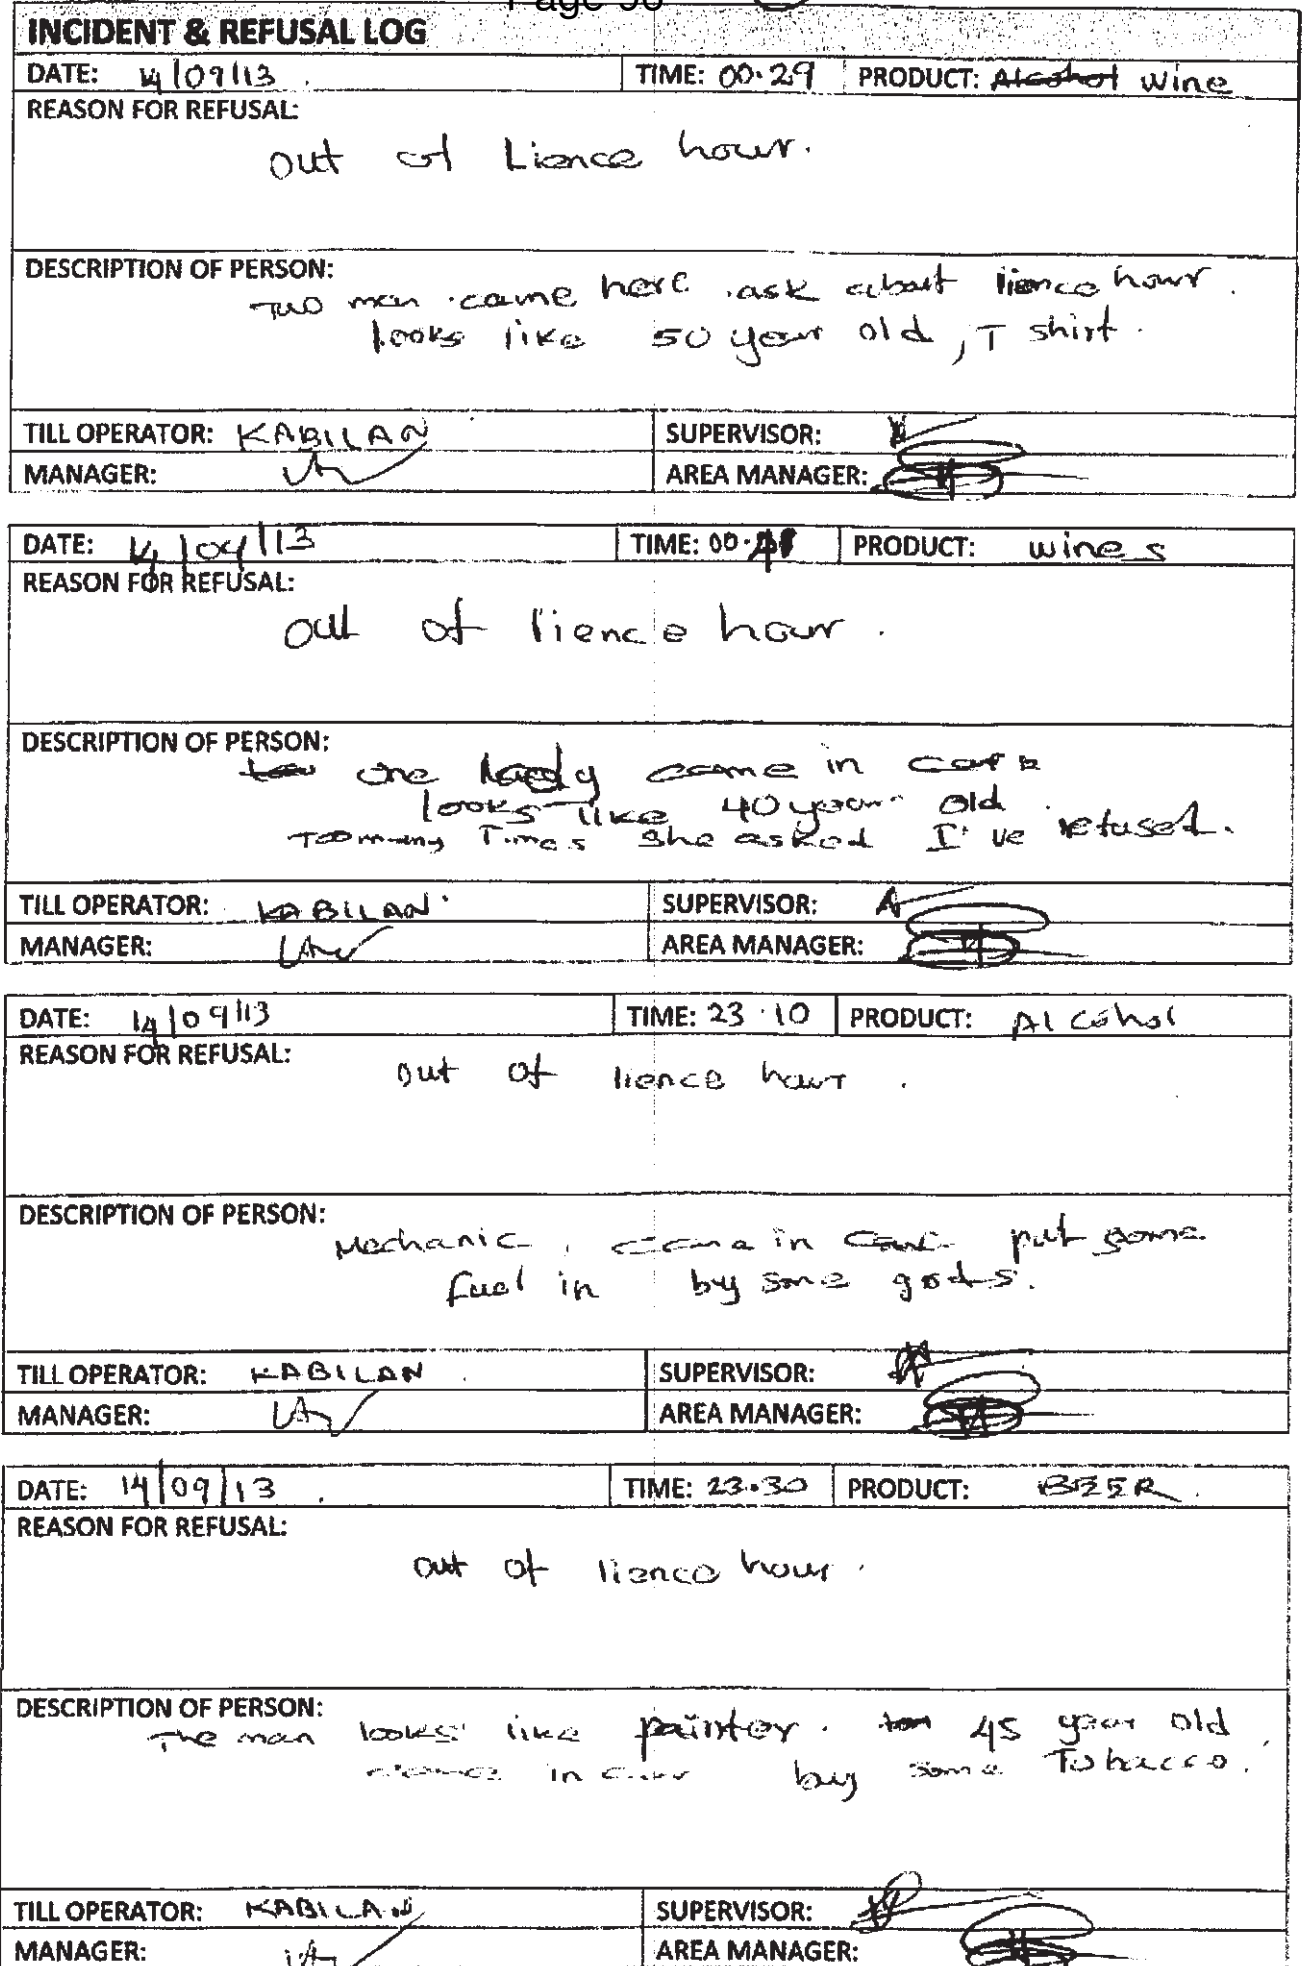 INCIDENT & REFUSAL LOG
DATE: 14/09/13 TIME: 00.29 PRODUCT: Alcohol wine
REASON FOR REFUSAL:
out of Lience hour.
DESCRIPTION OF PERSON:
Two man came here ask about lience hour.
looks like 50 year old, T shirt.
TILL OPERATOR: KABILAN SUPERVISOR:
MANAGER: AREA MANAGER:
DATE: 14/09/13 TIME: 00. PRODUCT: wines
REASON FOR REFUSAL:
out of lience hour.
DESCRIPTION OF PERSON:
one lady came in
looks like 40 year old
Too many Times she asked I've refused.
TILL OPERATOR: KABILAN SUPERVISOR:
MANAGER: AREA MANAGER:
DATE: 14/09/13 TIME: 23.10 PRODUCT: Alcohol
REASON FOR REFUSAL:
out of lience hour.
DESCRIPTION OF PERSON:
Mechanic, came in car put some
fuel in by some gods.
TILL OPERATOR: KABILAN SUPERVISOR:
MANAGER: AREA MANAGER:
DATE: 14/09/13 TIME: 23.30 PRODUCT: BEER
REASON FOR REFUSAL:
out of lience hour.
DESCRIPTION OF PERSON:
The man looks like painter. 45 year old
in car buy some Tobacco.
TILL OPERATOR: KABILAN SUPERVISOR:
MANAGER: AREA MANAGER: